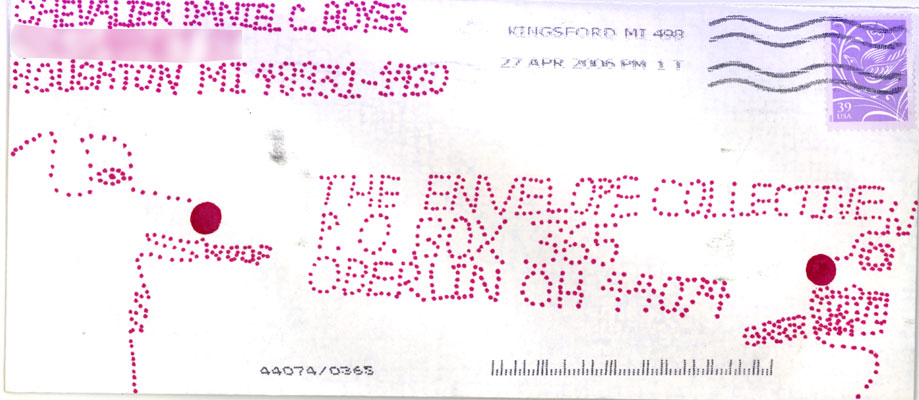 CHEVALIER DANIEL C. BOYER
HOUGHTON MI 49931-1420
KINGSFORD MI 498
27 APR 2006 PM 1 T
39
USA
THE ENVELOPE COLLECTIVE
P.O. BOX 365
OBERLIN OH 44074
44074/0365